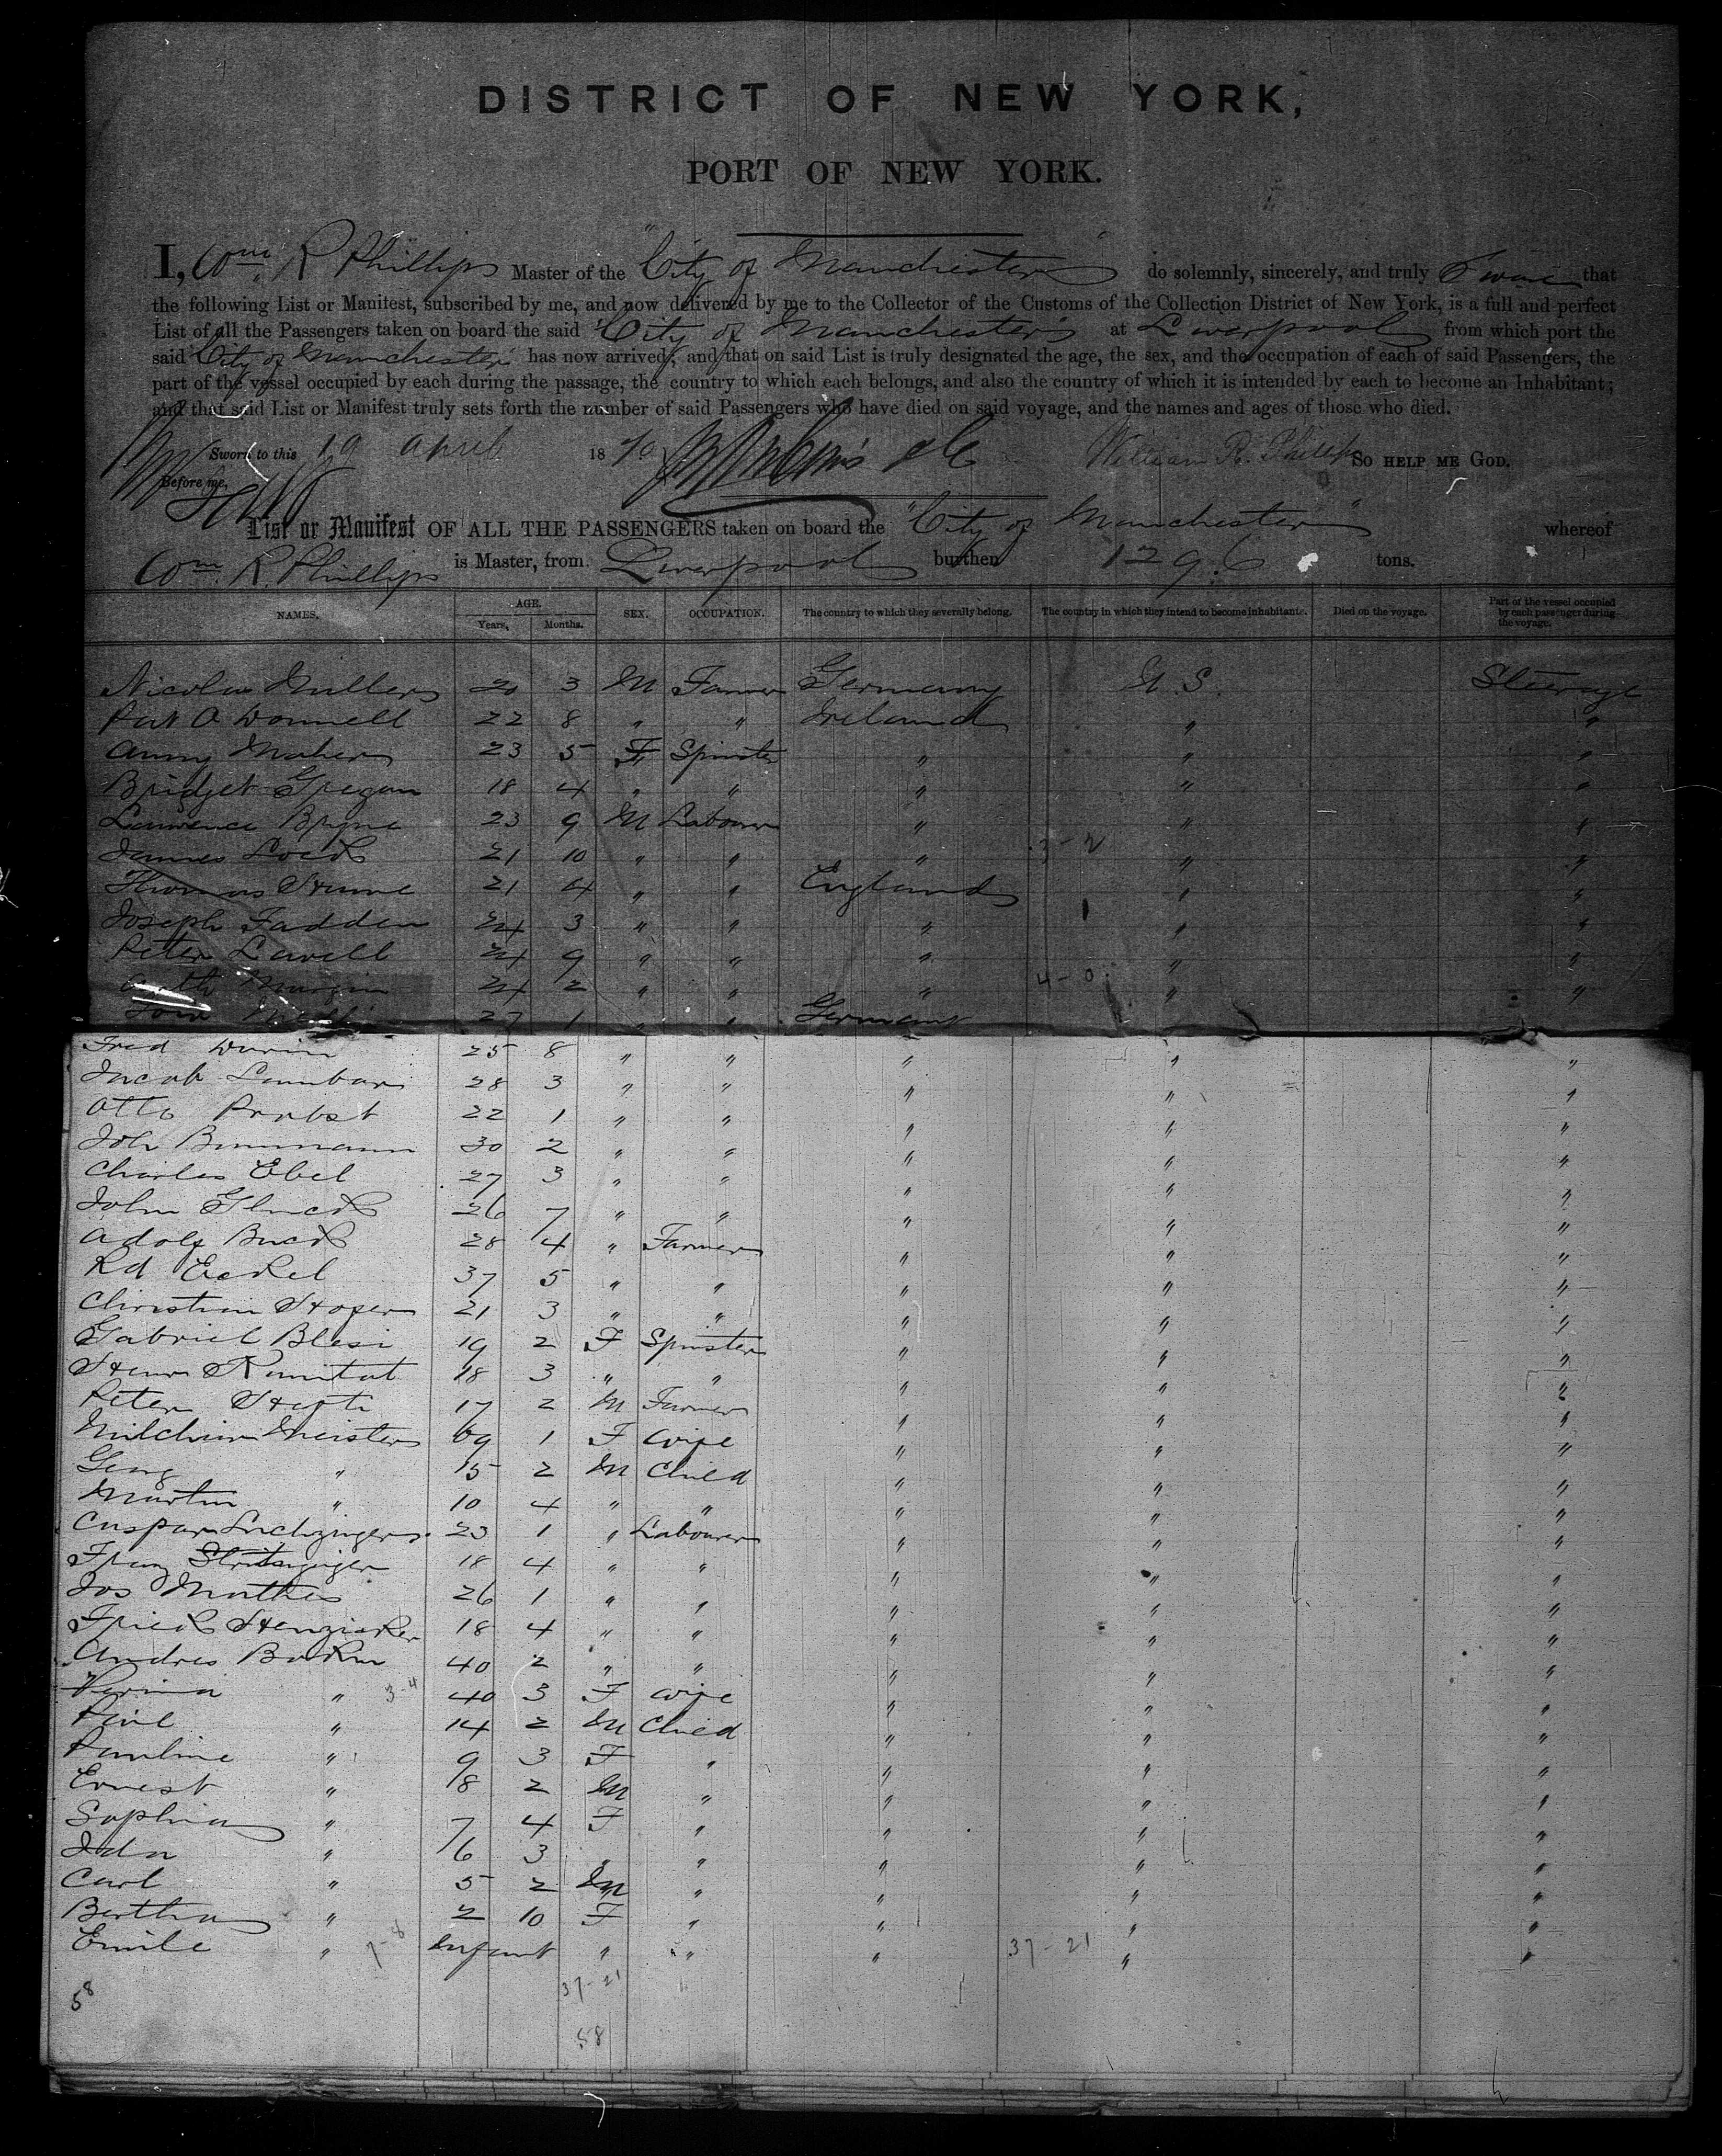 DISTRICT OF NEW YORK,
PORT OF NEW YORK.
I, Wm R Phillips Master of the "City of Manchester" do solemnly, sincerely, and truly Swear that
the following List or Manifest, subscribed by me, and now delivered by me to the Collector of the Customs of the Collection District of New York, is a full and perfect
List of all the Passengers taken on board the said "City of Manchester" at Liverpool from which port the
said City of Manchester has now arrived; and that on said List is truly designated the age, the sex, and the occupation of each of said Passengers, the
part of the vessel occupied by each during the passage, the country to which each belongs, and also the country of which it is intended by each to become an Inhabitant;
and that said List or Manifest truly sets forth the number of said Passengers who have died on said voyage, and the names and ages of those who died.
Sworn to this 19 April 1870 William R. Phillips So HELP ME GOD.
Before me,
List or Manifest OF ALL THE PASSENGERS taken on board the "City of Manchester" whereof
Wm R. Phillips is Master, from Liverpool burthen 1296 tons.
NAMES. AGE. Years, Months. SEX. OCCUPATION. The country to which they severally belong. The country in which they intend to become inhabitants. Died on the voyage. Part of the vessel occupied by each passenger during the voyage.
Nicolas Miller 20 3 M Farmer Germany U.S. Steerage
Pat O Donnell 22 8 " " Ireland " "
Anny Maher 23 5 F Spinster " " "
Bridget Gregan 18 4 " " " " "
Lawrence Bryne 23 9 M Labourer " " "
James 21 10 " " " 3-2 " "
Thomas Hume 21 4 " " England " "
Joseph Fadden 24 3 " " " " "
Peter Lavell 24 9 " " " " "
24 2 " " " 4-0 " "
27 1 " " Germany
Fred 25 8 " " " " "
Jacob 28 3 " " " " "
Otto Probst 22 1 " " " " "
Joh 30 2 " " " " "
Charles Ebel 27 3 " " " " "
John Gluck 26 7 " " " " "
Adolf Buck 28 4 " Farmer " " "
Rd Eckel 37 5 " " " " "
Christian 21 3 " " " " "
Gabriel Blesi 19 2 F Spinster " " "
18 3 " " " " "
Peter Hefti 17 2 M Farmer " " "
Meister 69 1 F Wife " " "
Georg " 15 2 M Child " " "
Martin " 10 4 " " " " "
Caspar 23 1 " Labourer " " "
Franz 18 4 " " " " "
Jos Mathes 26 1 " " " " "
18 4 " " " " "
Andres 40 2 " " " " "
" 3-4 40 3 F Wife " " "
" 14 2 M Child " " "
Pauline " 9 3 F " " " "
Ernest " 8 2 M " " " "
Sophia " 7 4 F " " " "
Ida " 6 3 " " " " "
Carl " 5 2 M " " " "
Bertha " 2 10 F " " " "
Emile " 7-8 Infant " " " 37-21 " "
58 37-21
58